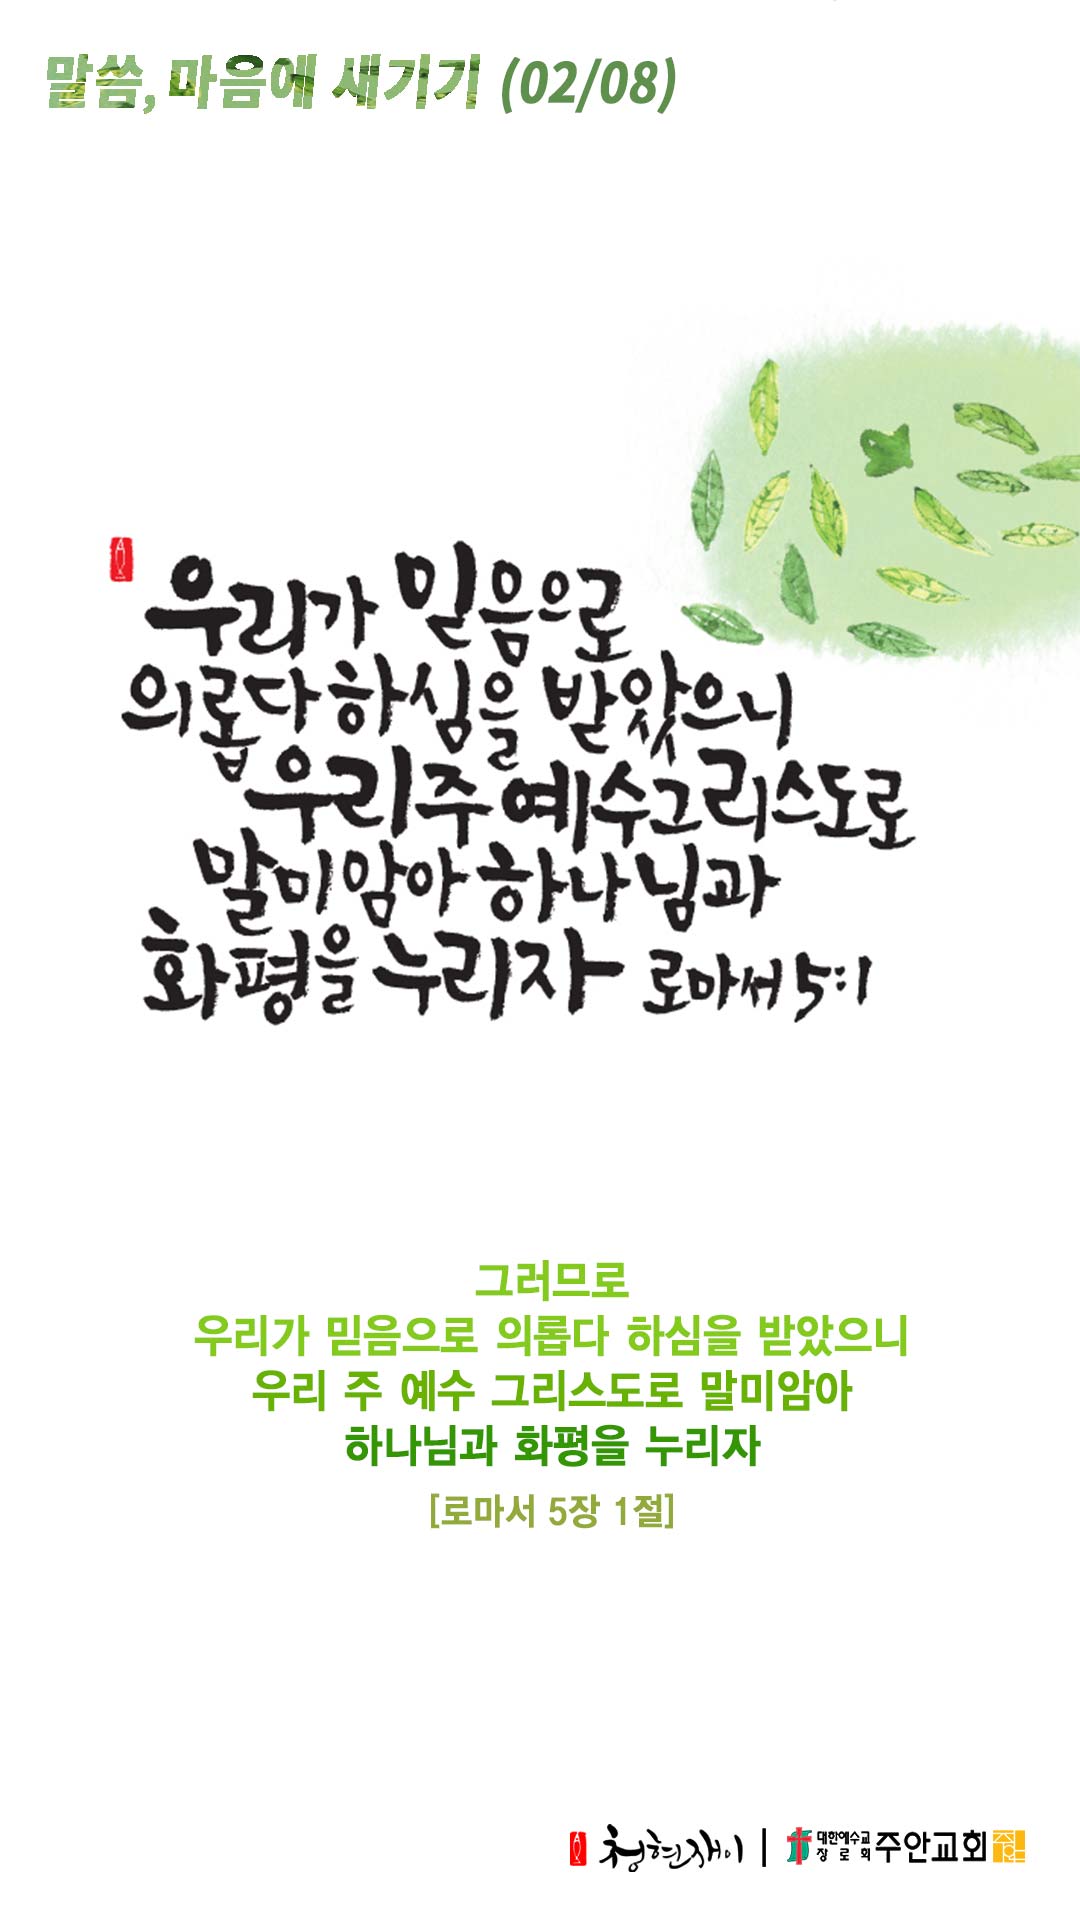 말씀, 마음에 새기기 (02/08)
우리가 믿음으로
의롭다 하심을 받았으니
우리 주 예수 그리스도로
말미암아 하나님과
화평을 누리자 로마서 5:1
그러므로
우리가 믿음으로 의롭다 하심을 받았으니
우리 주 예수 그리스도로 말미암아
하나님과 화평을 누리자
[로마서 5장 1절]
청현재이 | 대한예수교
장로회 주안교회